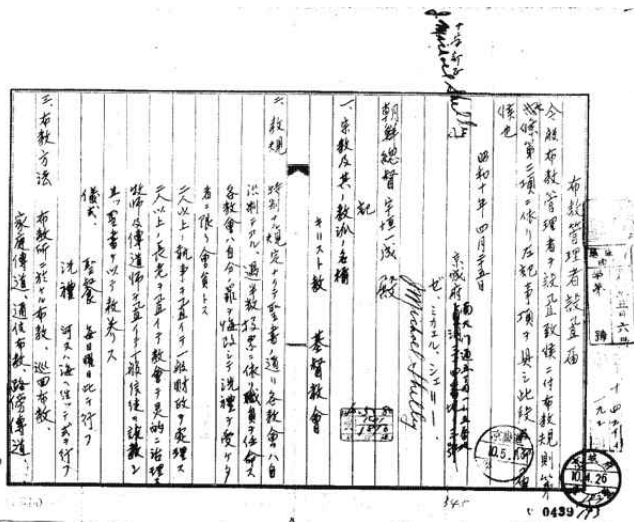 布教管理者設置届
今般布教管理者ヲ設置致候ニ付布教規則第
條第二項ニ依リ左記事項ヲ具シ此段
候也
昭和十年四月二十五日
京城府
ゼ、ミカエル、シェリー
Michael Shelly
朝鮮總督宇垣一成殿
記
一、宗教及其ノ教派ノ名稱
キリスト教 基督教會
二、教規
特別ナル規定ナク
聖書ノ通リ各教會ハ自
治制デアル、過半數投票ニ依リ職員ヲ任命ス
各教會ハ自分ノ罪ヲ悔改シテ洗禮ヲ受ケタ
者ニ限リ會員トス
二人以上ノ執事ヲ置イテ一般財政ヲ處理ス
二人以上ノ長老ヲ置イテ教會ヲ靈的ニ治理ス
牧師及傳道師ヲ置イテ一般信徒ヲ
且ツ聖書ヲ以テ教養ス
儀式、
聖餐 每日曜日此ヲ行フ
洗禮 河又ハ海ヘ往ッテ式ヲ行フ
三、布教方法
布教所ニ於ケル布教、巡回布教、
家庭傳道、通信布教、路傍傳道、
10.5.1
10.4.26
0439